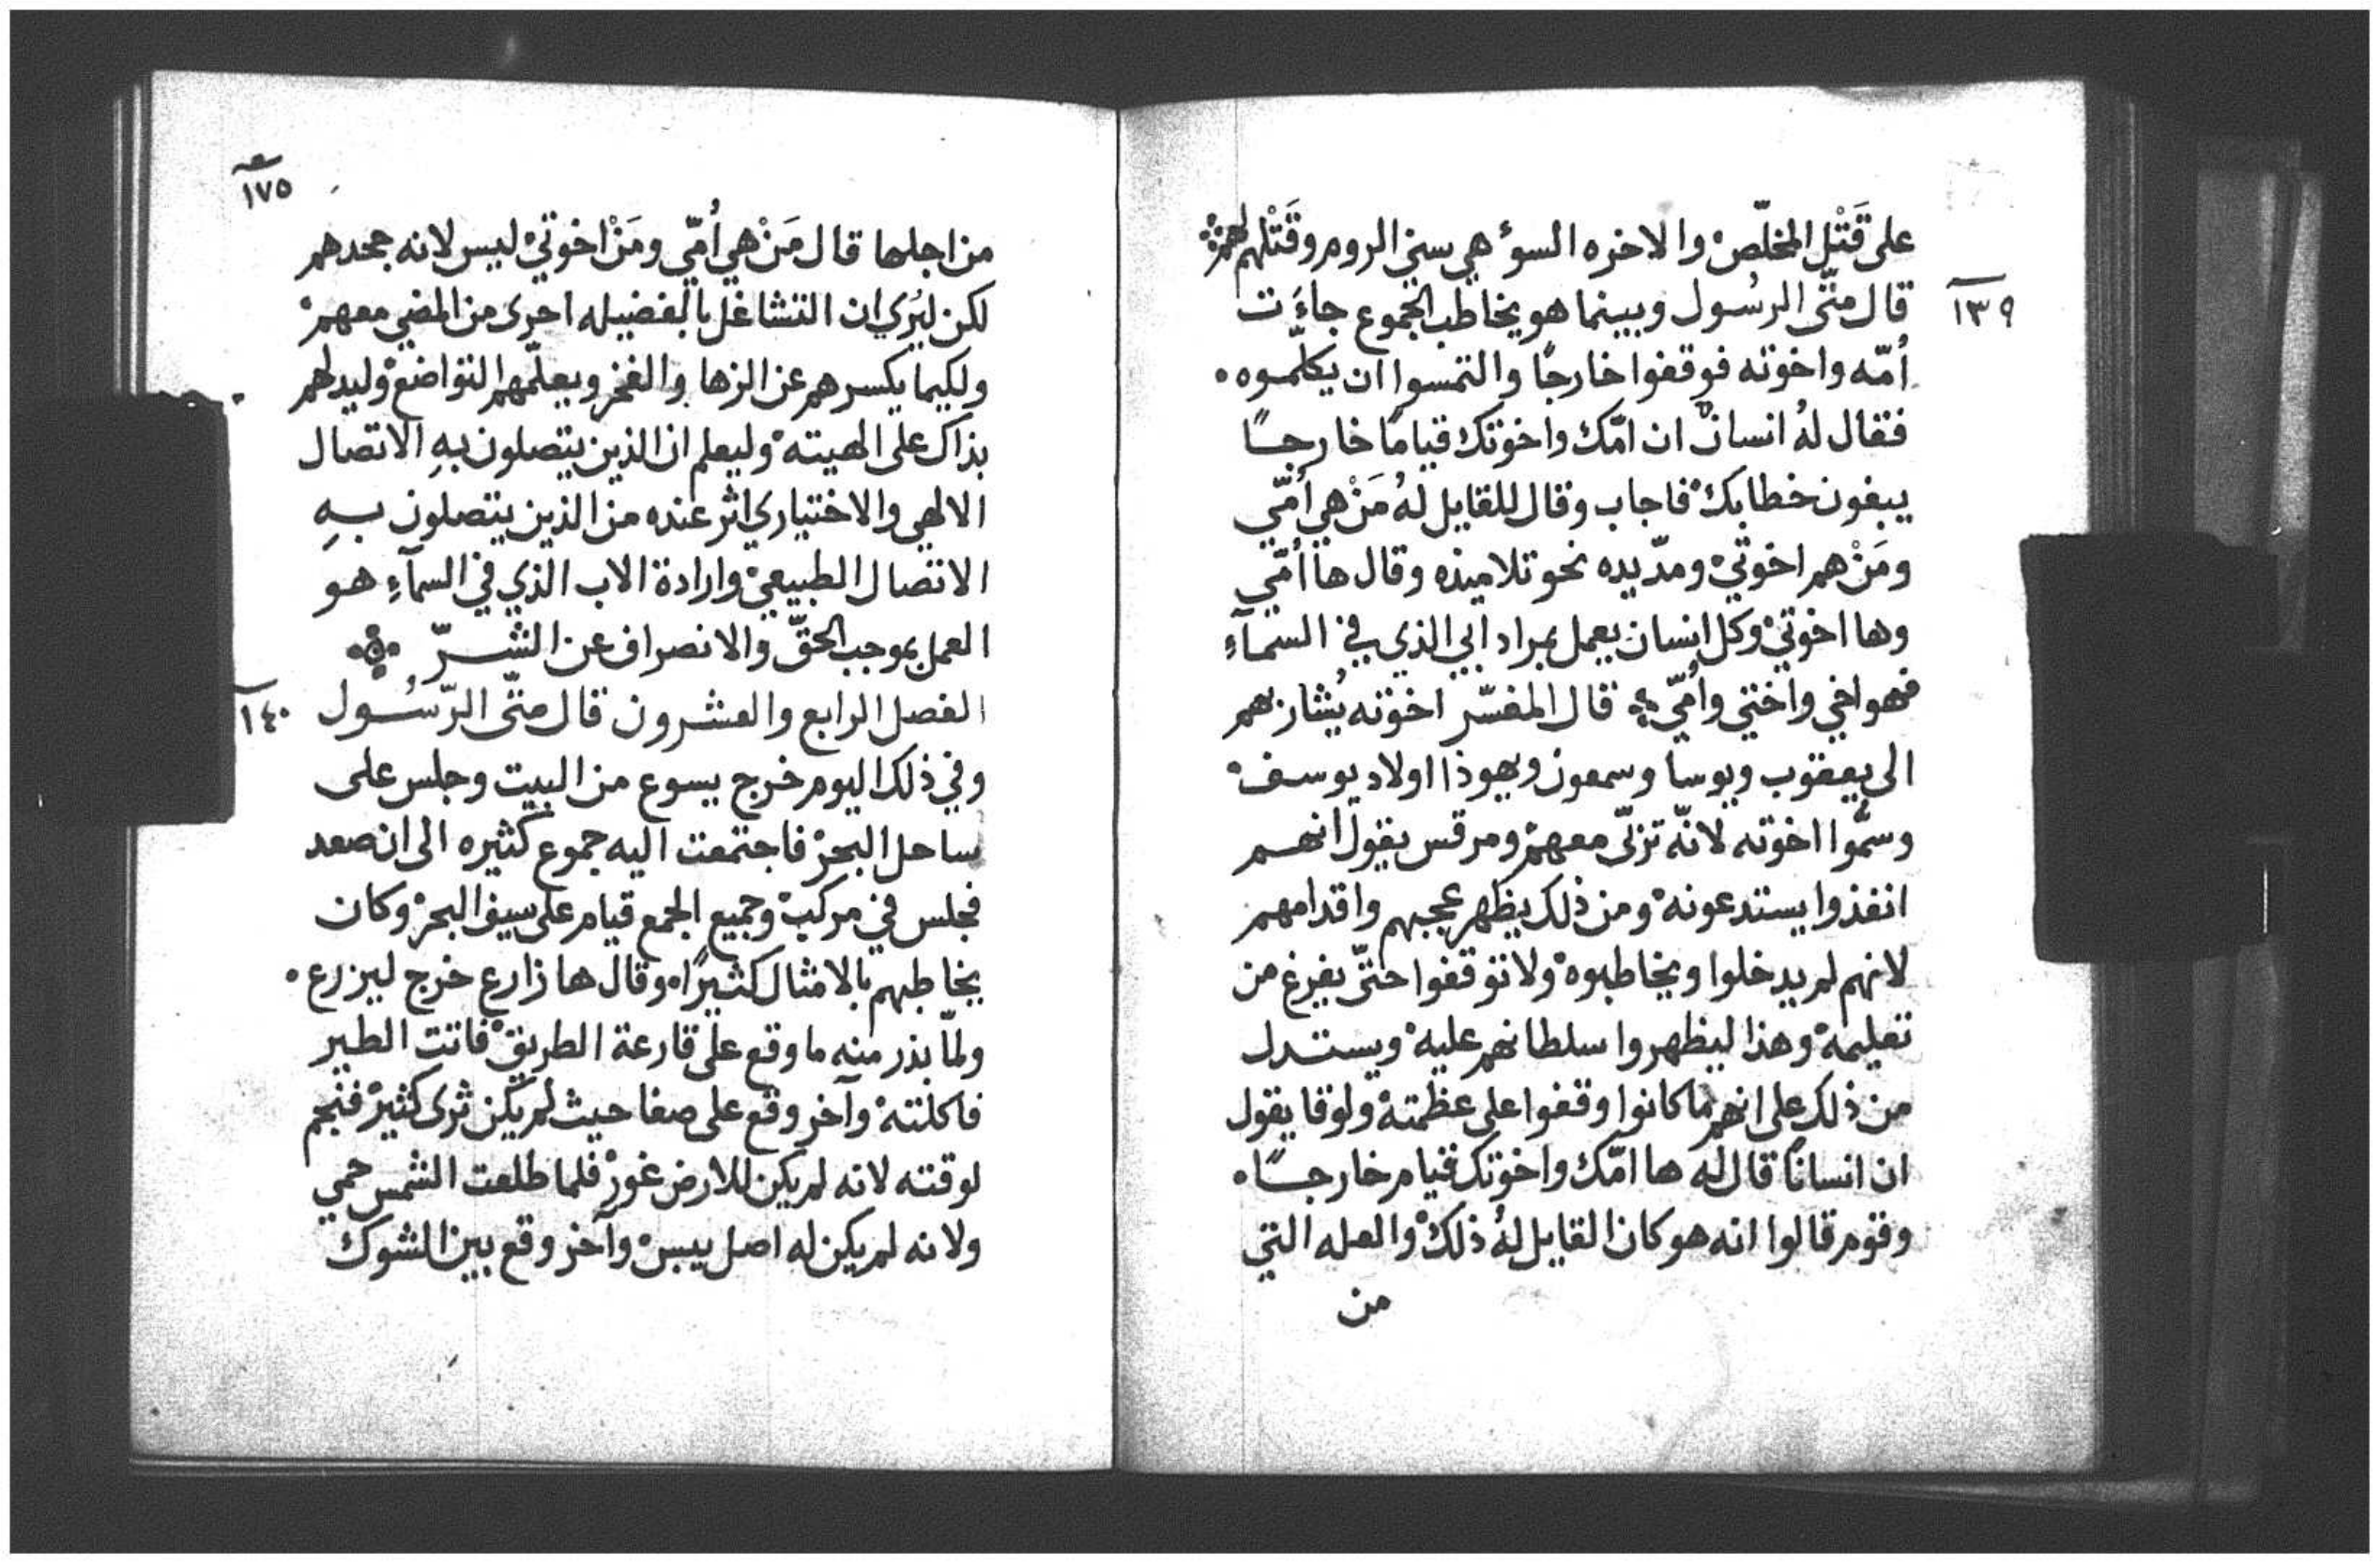 على قَتْل المخلّص والاخره السوؤ هي سبي الروم وقَتْلهم لهم
١٣٩
قال متّى الرسُول وبينما هو يخاطب الجموع جاءَت
أمّه واخوته فوقفوا خارجًا والتمسوا ان يكلّموه
فقال لهُ انسانٌ ان امّك واخوتك قيامًا خارجًا
يبغون خطابك فاجاب وقال للقايل لهُ مَنْ هي أمّي
ومَنْ هم اخوتي ومدّ يده نحو تلاميذه وقال ها أمّي
وها اخوتي وكل انسان يعمل بمراد ابي الذي في السمآءِ
فهو اخي واختي وأمّي قال المفسّر اخوته يُشار بهم
الى يعقوب ويوسا وسمعون ويهوذا اولاد يوسف
وسمُّوا اخوته لانّه تربّى معهم ومرقس يقول انهم
انفذوا يستدعونه ومن ذلك يظهر عجبهم واقدامهم
لانهم لم يدخلوا ويخاطبوه ولا توقفوا حتّى يفرغ من
تعليمه وهذا ليظهروا سلطانهم عليه ويستدل
من ذلك على انهم ما كانوا وقفوا على عظمته ولوقا يقول
ان انسانًا قال له ها امّك واخوتك قيام خارجًا
وقوم قالوا انه هو كان القايل لهُ ذلك والعله التي
من
١٧٥
من اجلها قال مَنْ هي أُمّي ومَنْ اخوتي ليس لانه جحدهم
لكن ليُري ان التشاغل بالفضيله احرى من المضي معهم
ولكيما يكسرهم عن الزها والفخر ويعلّمهم التواضع وليدلهم
بذاك على الهيته وليعلم ان الذين يتصلون بهِ الاتصال
الالهي والاختياري اثر عنده من الذين يتصلون بهِ
الاتصال الطبيعي وارادة الاب الذي في السمآءِ هو
العمل بموجب الحقّ والانصراف عن الشرّ
١٤٠
الفصل الرابع والعشرون قال متّى الرّسُول
وفي ذلك اليوم خرج يسوع من البيت وجلس على
ساحل البحر فاجتمعت اليه جموع كثيره الى ان صعد
فجلس في مركب وجميع الجمع قيام على سيف البحر وكان
يخاطبهم بالامثال كثيرًا وقال ها زارع خرج ليزرع
ولمّا بذر منه ما وقع على قارعة الطريق فاتت الطير
فاكلته وآخر وقع على صفا حيث لم يكن ثرى كثير فنجم
لوقته لانه لم يكن للارض غور فلما طلعت الشمس حمي
ولانه لم يكن له اصل يبس وآخر وقع بين الشوك